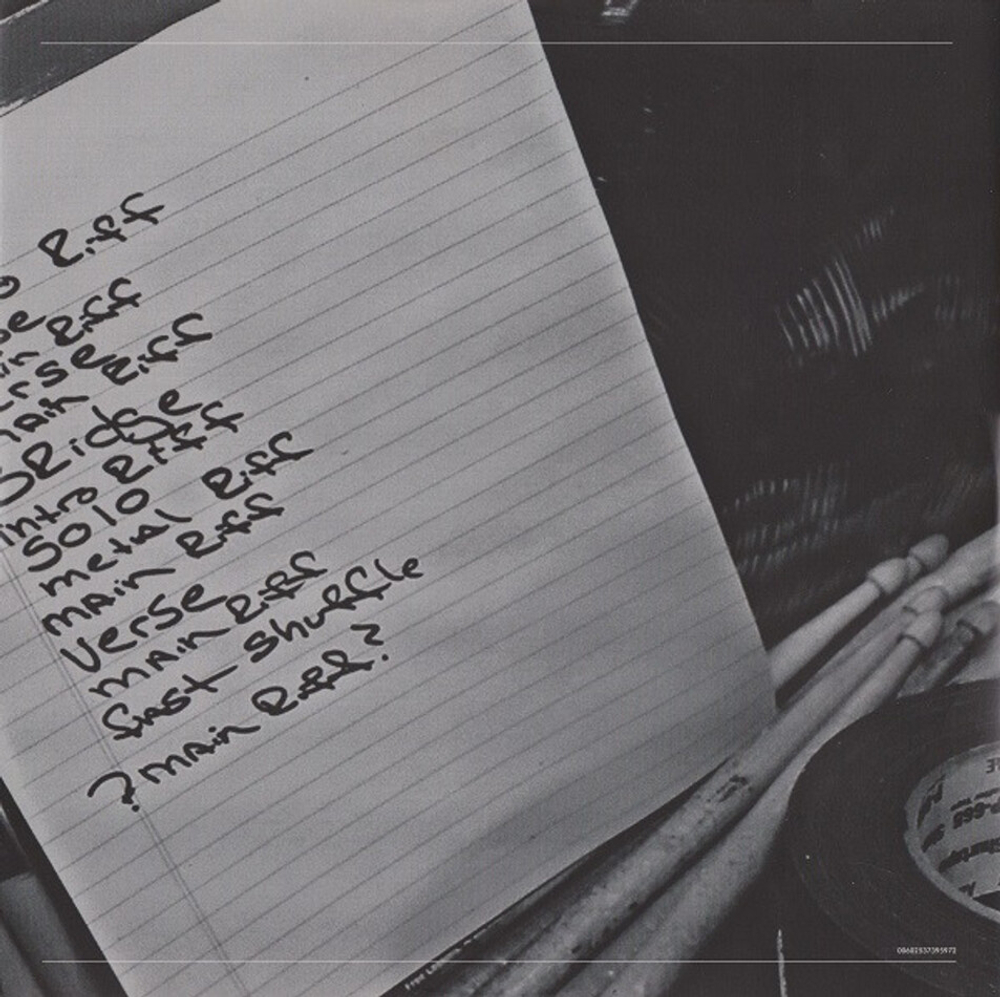 o Riff
be
in Riff
erse
main Riff
BRidge
intro Riff
Solo
metal Riff
main Riff
Verse
main Riff
fast shuffle
? main Riff?
00602537395972